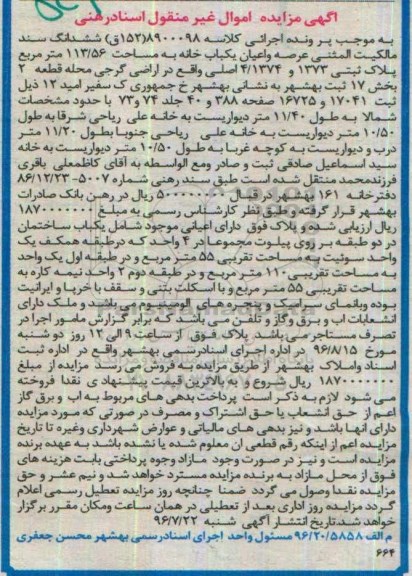 آگهی مزایده اموال غیر منقول اسنادرهنی
به موجب پرونده اجرائی کلاسه ۸۹۰۰۰۹۸(۱۵۲ق) ششدانگ سند
مالکیت المثنی عرصه واعیان یکباب خانه به مساحت ۱۱۳/۵۶ متر مربع
پلاک ثبتی ۱۳۷۳ و ۴/۱۳۷۴ اصلی واقع در اراضی گرجی محله قطعه ۲
بخش ۱۷ ثبت بهشهر به نشانی بهشهر خ جمهوری ک سفیر امید ۱۲ ذیل
ثبت ۱۷۰۴۱ و ۱۶۷۲۵ صفحه ۳۸۸ و ۴۰ جلد ۷۴ و ۷۳ با حدود مشخصات
شمالا به طول ۱۱/۴۰ متر دیواریست به خانه علی ریاحی شرقا به طول
۱۰/۵۰ متر دیواریست به خانه علی ریاحی جنوبا بطول ۱۱/۲۰ متر
درب و دیواریست به کوچه غربا به طول ۱۰/۵۰ متر دیواریست به خانه
سید اسماعیل صادقی ثبت و صادر ومع الواسطه به آقای کاظمعلی باقری
فرزندمحمد منتقل شده است طبق سند رهنی شماره ۵۰۰۷-۸۶/۱۲/۲۳
دفترخانه ۱۶۱ بهشهر در قبال ۵۰۰۰۰۰۰۰۰ ریال در رهن بانک صادرات
بهشهر قرار گرفته و طبق نظر کارشناس رسمی به مبلغ ۱۸۷۰۰۰۰۰۰۰
ریال ارزیابی شده و پلاک فوق دارای اعیانی موجود شامل یکباب ساختمان
در دو طبقه بر روی پیلوت مجموعا در ۴ واحد که درطبقه همکف یک
واحد سوئیت به مساحت تقریبی ۵۵ متر مربع و در طبقه اول یک واحد
به مساحت تقریبی ۱۱۰ متر مربع و در طبقه دوم ۲ واحد نیمه کاره به
مساحت تقریبی ۵۵ متر مربع و با اسکلت بتنی و سقف با خرپا و ایرانیت
بوده وبانمای سرامیک و پنجره های آلومینیوم می باشد و ملک دارای
انشعابات اب و برق و گاز و تلفن می باشد که برابر گزارش مامور اجرا در
تصرف مستاجر می باشد پلاک فوق از ساعت ۹ الی ۱۲ روز دو شنبه
مورخ ۹۶/۸/۱۵ در اداره اجرای اسنادرسمی بهشهر واقع در اداره ثبت
اسناد واملاک بهشهر از طریق مزایده به فروش می رسد مزایده از مبلغ
۱۸۷۰۰۰۰۰۰۰ ریال شروع و به بالاترین قیمت پیشنهاد ی نقدا فروخته
می شود لازم به ذکر است پرداخت بدهی های مربوط به اب و برق گاز
اعم از حق انشعاب یا حق اشتراک و مصرف در صورتی که مورد مزایده
دارای آنها باشد و نیز بدهی های مالیاتی و عوارض شهرداری وغیره تا تاریخ
مزایده اعم از اینکه رقم قطعی ان معلوم شده یا نشده باشد به عهده برنده
مزایده است و نیز در صورت وجود مازاد وجوه پرداختی بابت هزینه های
فوق از محل مازاد به برنده مزایده مسترد خواهد شد و نیم عشر و حق
مزایده نقدا وصول می گردد ضمنا چنانچه روز مزایده تعطیل رسمی اعلام
گردد مزایده روز اداری بعد از تعطیلی در همان ساعت ومکان مقرر برگزار
خواهد شد.تاریخ انتشار آگهی شنبه ۹۶/۷/۲۲
م الف ۹۶/۲۰/۵۸۵۸ مسئول واحد اجرای اسنادرسمی بهشهر محسن جعفری
۶۶۴